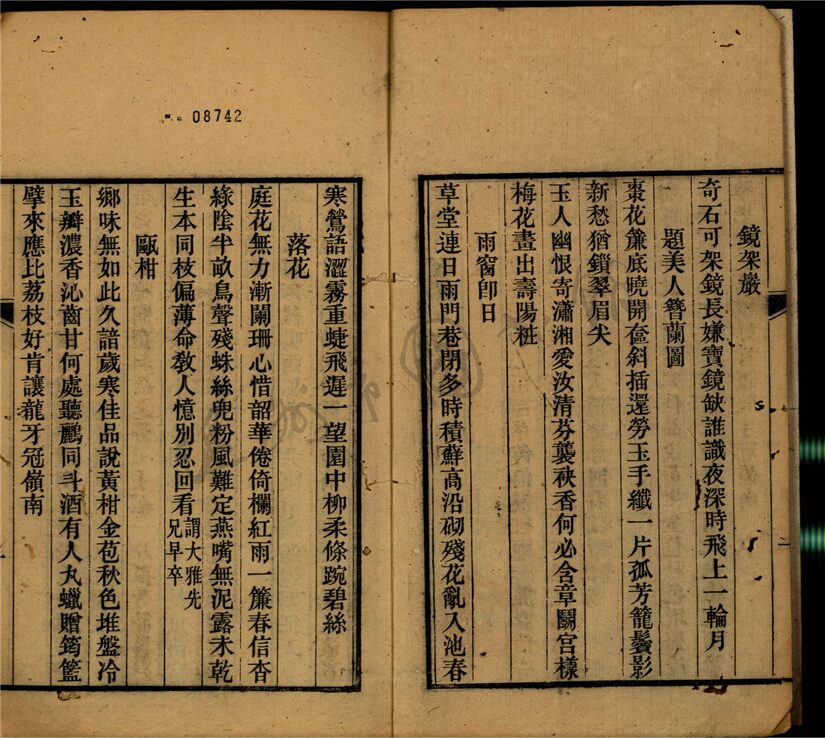 08742
鏡架巖
奇石可架鏡長嫌寶鏡缺誰識夜深時飛上一輪月
題美人簪蘭圖
棗花簾底曉開奩斜插還勞玉手纖一片孤芳籠鬢影
新愁猶鎖翠眉尖
玉人幽恨寄瀟湘愛汝清芬襲袂香何必含章鬭宮樣
梅花畫出壽陽粧
雨窗卽日
草堂連日雨門巷閉多時積蘚高沿砌殘花亂入池春
寒鶯語澀霧重蜨飛遲一望園中柳柔條踠碧絲
落花
庭花無力漸闌珊心惜韶華倦倚欄紅雨一簾春信杳
綠陰半畝鳥聲殘蛛絲兜粉風難定燕嘴無泥露未乾
生本同枝偏薄命敎人憶別忍回看謂大雅先
兄早卒
甌柑
鄉味無如此久諳歲寒佳品說黃柑金苞秋色堆盤冷
玉瓣濃香沁齒甘何處聽鸝同斗酒有人丸蠟贈筠籃
擘來應比荔枝好肯讓龍牙冠嶺南